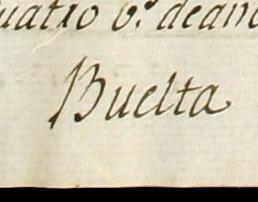 uatro v.ˢ deanc
Buelta